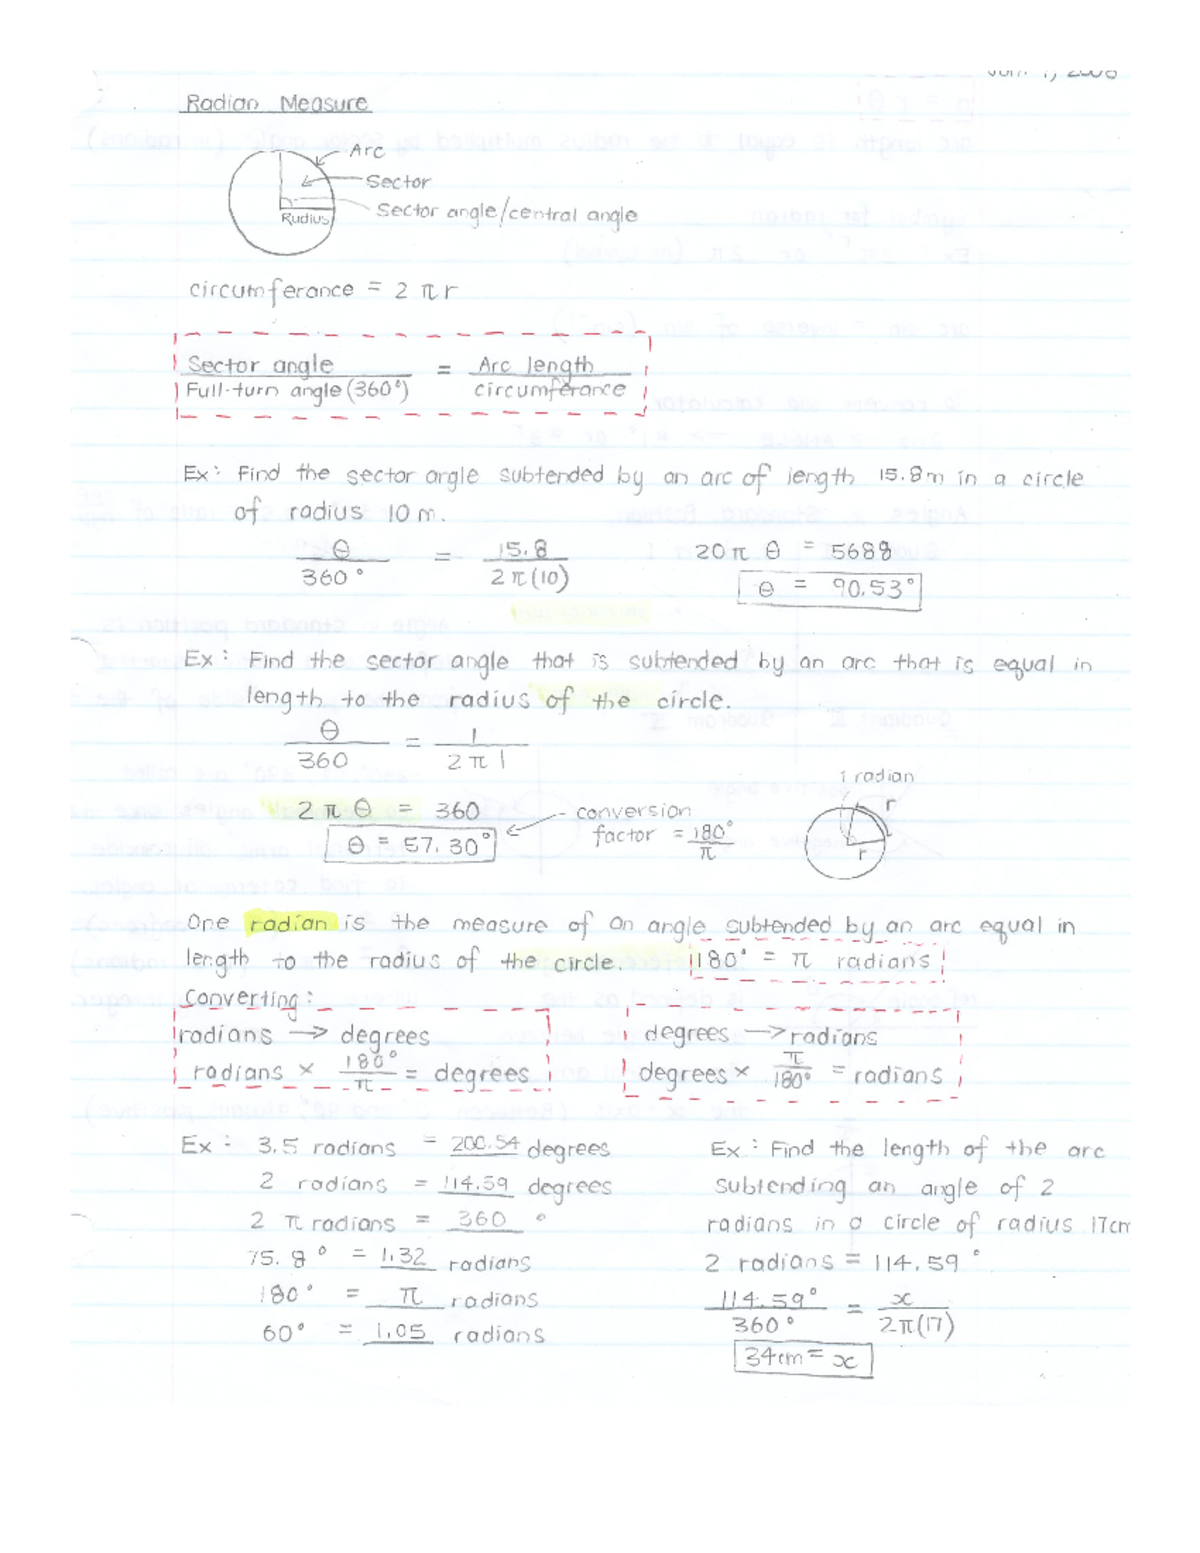 Radian Measure
Arc
Sector
Sector angle/central angle
Radius
circumferance = 2 π r
Sector angle / Full-turn angle (360°) = Arc length / circumferance
Ex: Find the sector angle subtended by an arc of length 15.8m in a circle
of radius 10 m.
θ / 360° = 15.8 / 2π(10)
20 π θ = 5688
θ = 90.53°
Ex: Find the sector angle that is subtended by an arc that is equal in
length to the radius of the circle.
θ / 360 = 1 / 2 π 1
2 π θ = 360
θ = 57.30°
conversion
factor = 180° / π
1 radian
r
r
One radian is the measure of an angle subtended by an arc equal in
length to the radius of the circle.
180° = π radians
Converting:
radians → degrees
radians × 180° / π = degrees
degrees → radians
degrees × π / 180° = radians
Ex: 3.5 radians = 200.54 degrees
2 radians = 114.59 degrees
2 π radians = 360 °
75.8° = 1.32 radians
180° = π radians
60° = 1.05 radians
Ex: Find the length of the arc
subtending an angle of 2
radians in a circle of radius 17cm
2 radians = 114.59°
114.59° / 360° = x / 2π(17)
34cm = x